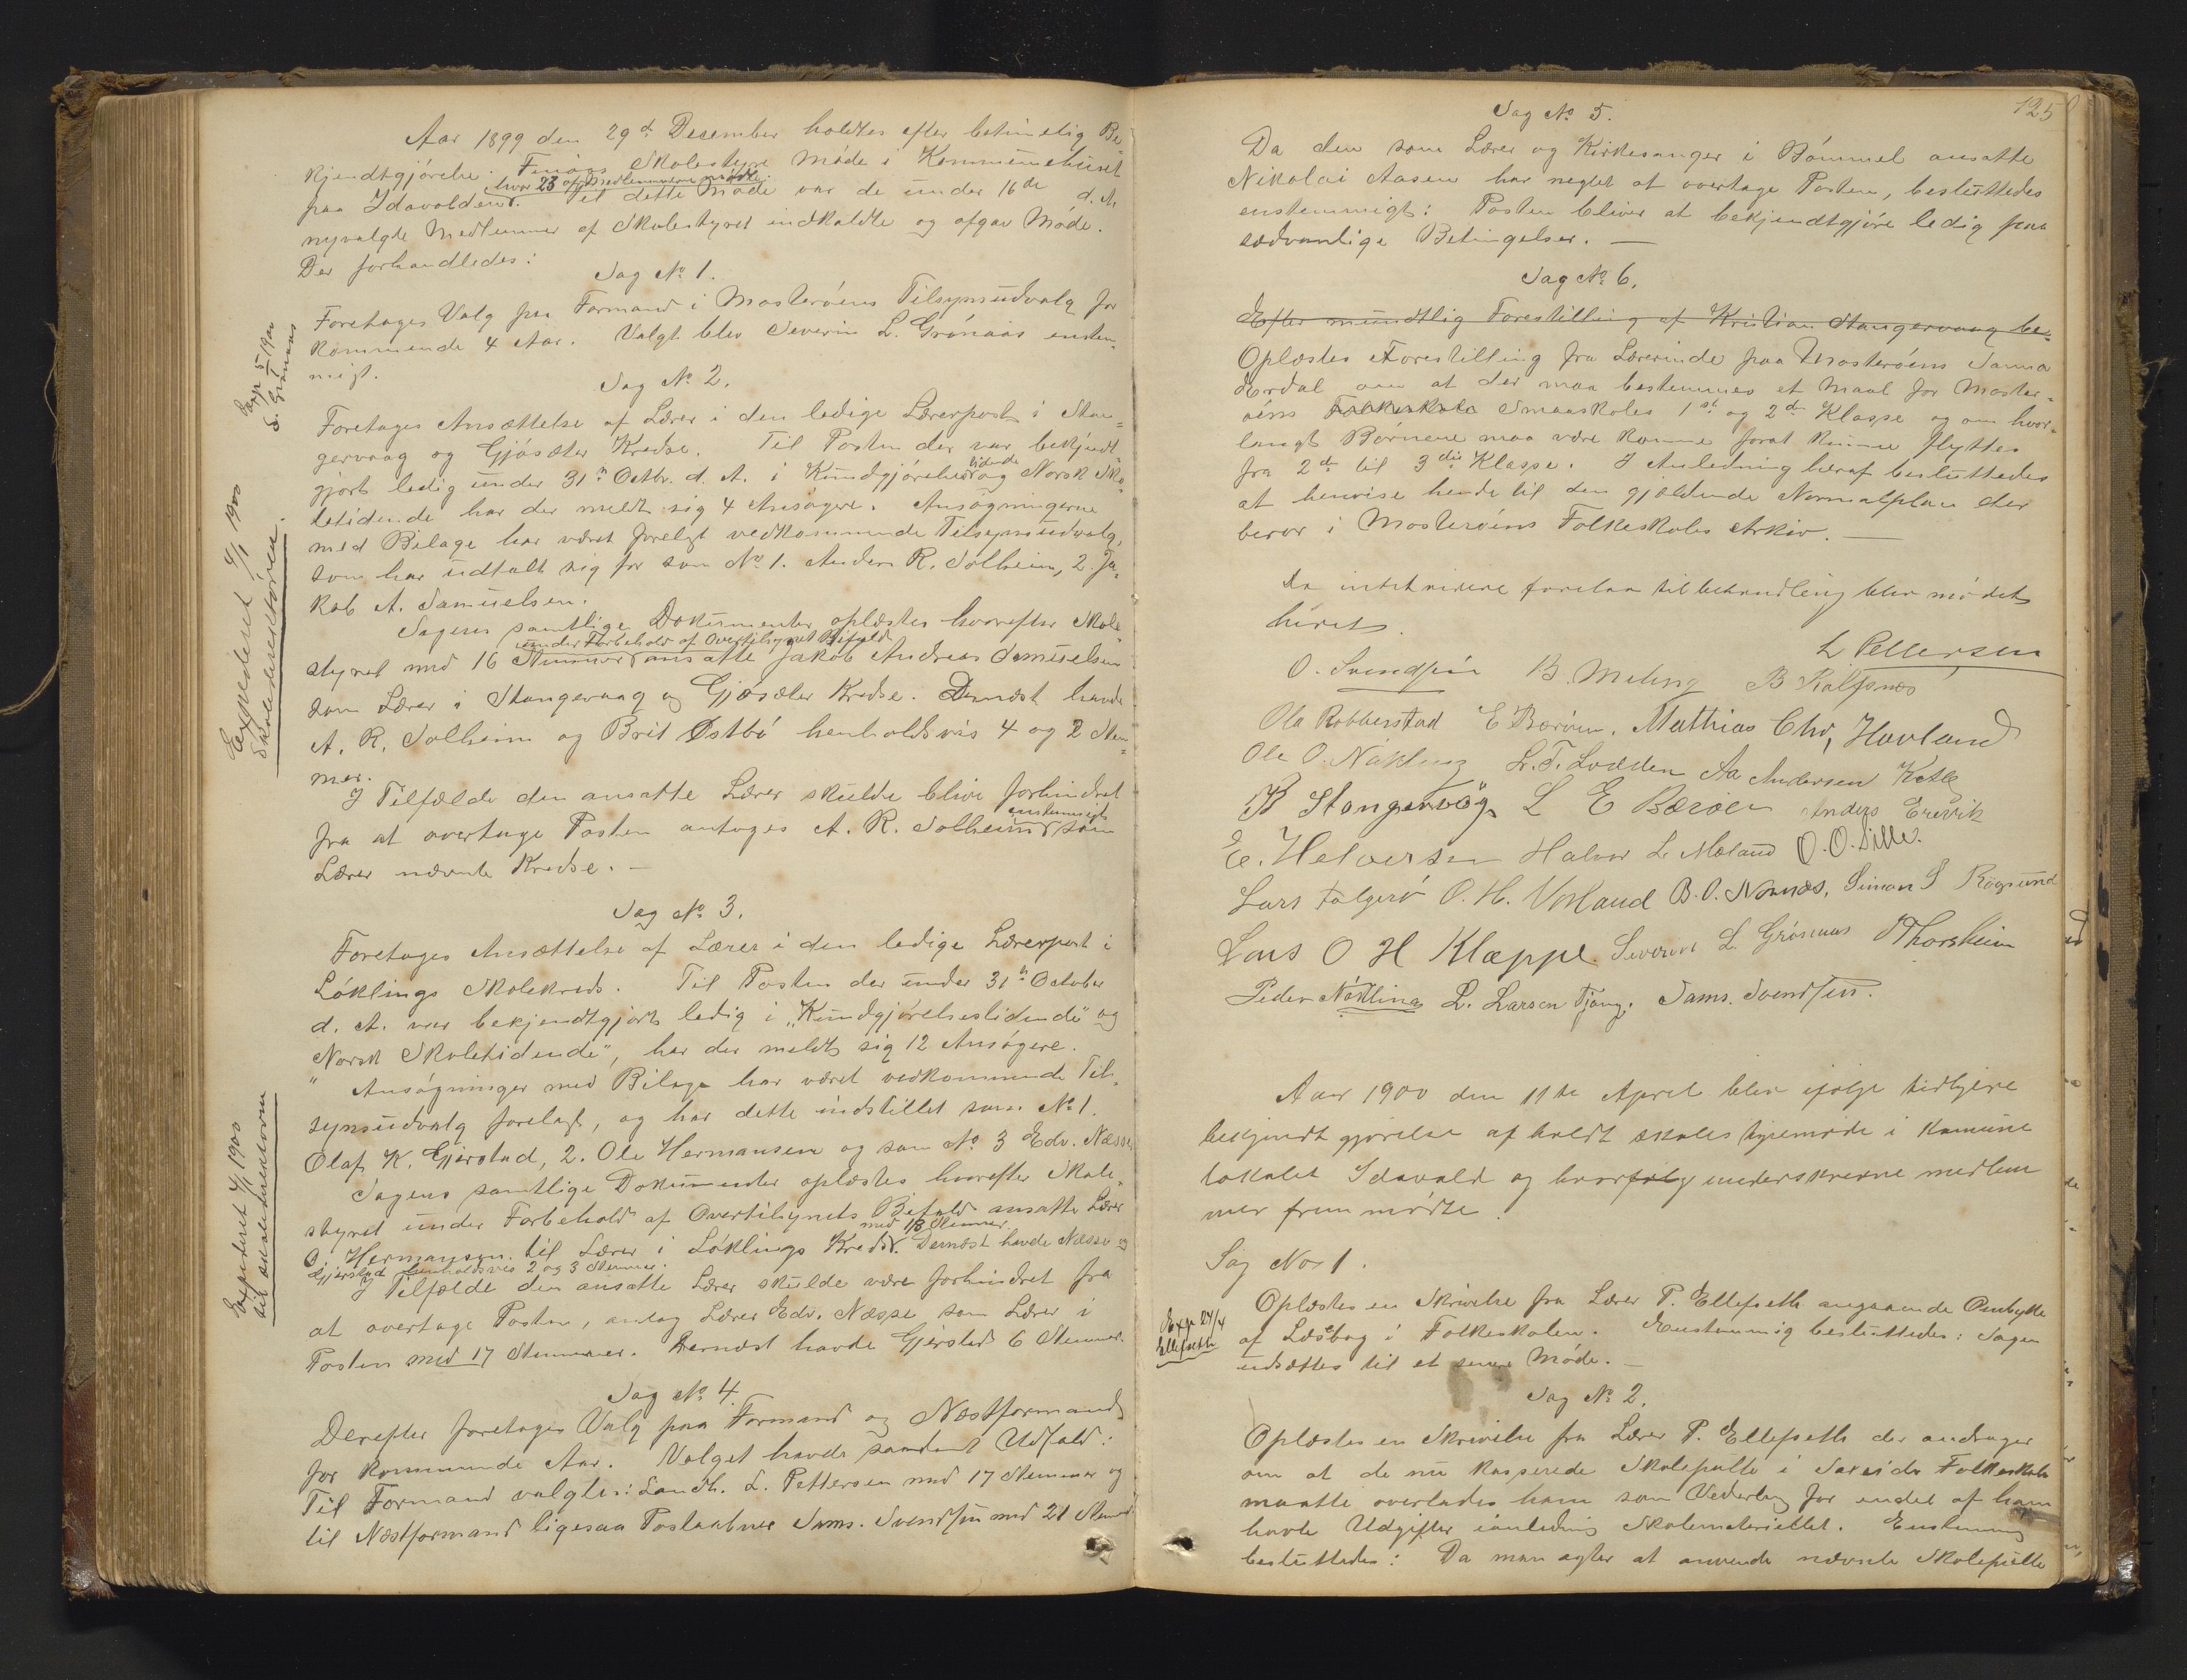 Aar 1899 den 29de Desember holdtes efter betimelig Be-
kjendtgjörelse Finöas Skolestyre Möde i Kommunehuset
paa Idavolden, hvor 23 af Medlemmerne mödte. Til dette Möde var de under 16de d. M.
nyvalgte Medlemmer af Skolestyret indkaldte og afgav Möde.
Der forhandledes:
Sag No 1.
Foretages Valg paa Formand i Mosteröens Tilsynsudvalg for
kommende 4 Aar. Valgt blev Severin L. Grönaas enstem-
migt.
Exp 5/1 1900
S. Grönaas
Sag No 2.
Foretages Ansættelse af Lærer i den ledige Lærerpost i Stan-
gervaag og Gjösæter Kredse. Til Posten der var bekjendt-
gjort ledig under 31te Octbr. d. A. i Kundgjörelsestidende og Norsk Sko-
letidende har der meldt sig 4 Ansögere. Ansögningerne
med Bilage har været forelagt vedkommende Tilsynsudvalg,
som har udtalt sig for som No 1. Anders R. Solheim, 2. Ja-
kob A. Samuelsen.
Sagens samtlige Dokumenter oplæstes hvorefter Skole-
styret med 16 Stemmer under Forbehold af Overtilsynets Bifald ansatte Jakob Andreas Samuelsen
som Lærer i Stangervaag og Gjösæter Kredse. Dernæst havde
A. R. Solheim og Brit Östbö henholdsvis 4 og 2 Stem-
mer.
I Tilfælde den ansatte Lærer skulde blive forhindret
fra at overtage Posten antoges A. R. Solheim enstemmigt som
Lærer nævnte Kredse. —
Expederet 4/1 1900
Skoledirektören.
Sag No 3.
Foretages Ansættelse af Lærer i den ledige Lærerpost i
Löklings Skolekreds. Til Posten der under 31te October
d. A. var bekjendtgjort ledig i „Kundgjörelsestidende" og
„Norsk Skoletidende", har der meldt sig 12 Ansögere.
Ansögninger med Bilage har været vedkommende Til-
synsudvalg forelagt, og har dette indstillet som No 1.
Olaf K. Gjerstad, 2. Ole Hermansen og som No 3 Edv. Næsse
Sagens samtlige Dokumenter oplæstes hvorefter Skole-
styret under Forbehold af Overtilsynets Bifald ansatte Lærer
O. Hermansen til Lærer i Löklings Kreds med 18 Stemmer. Dernæst havde Næsse og
Gjerstad henholdsvis 2 og 3 Stemmer.
I Tilfælde den ansatte Lærer skulde være forhindret fra
at overtage Posten, antog Lærer Edv. Næsse som Lærer i
Posten med 17 Stemmer. Dernæst havde Gjerstad 6 Stemmer.
Expederet 4/1 1900
til skoledirektören
Sag No 4.
Derefter foretages Valg paa Formand og Næstformand
for kommende Aar. Valget havde saadant Udfald:
Til Formand valgtes: Landh. L. Pettersen med 17 Stemmer og
til Næstformand ligesaa Postaabner Sams. Svendsen med 21 Stemmer
125
Sag No 5.
Da den som Lærer og Kirkesanger i Bömmel ansatte
Nikolai Aasen har neglet at overtage Posten, besluttedes
enstemmigt: Posten bliver at bekjendtgjöre ledig paa
sædvanlige Betingelser. —
Sag No 6.
Efter mundtlig Forestilling af Kristian Stangervaag be-
Oplæstes Forestilling fra Lærerinde paa Mosteröens Sanna
Erdal om at der maa bestemmes et Maal for Moster-
öens Folkeskole Smaaskoles 1ste og 2den Klasse og om hvor-
langt Börnene maa være komne forat kunne flyttes
fra 2den til 3die Klasse. I Anledning heraf besluttedes
at henvise hende til den gjældende Normalplan der
beror i Mosteröens Folkeskoles Arkiv. —
Da intet videre forelaa til behandling blev mödet
hævet.
L Pettersen
O. Svendsen B. Meling B Kalfsnes
Ola Robberstad E Bæröen, Mathias Chr, Hovland
Ole O. Nökling L. T. Lodden Aa Andersen
K Stangervåg L E Bæröen Anders Erevik
E. Helversen Halvor L. Mæland O. O. Lille.
Lars Folgerö O. H. Vorland B. O. Nornes, Simon S Rögsund
Lars O H Klæppe. Severin L Grönaas Thorsheim
Peder Nökling L. Larsen Tjong. Sams. Svendsen.
Aar 1900 den 11te April blev ifölge tidligere
bekjendtgjörelse afholdt skolestyremöde i Kommune
lokalet Idavold og hvorfölg underskrevne medlem
mer fremmödte.
Sag No 1.
Oplæstes en Skrivelse fra Lærer P. Ellefseth angaaende Ombytte
af Læsebog i Folkeskolen. Enstemmig besluttedes: Sagen
udsættes til et senere Möde. —
Exp 24/4
Ellefseth
Sag No 2.
Oplæstes en Skrivelse fra Lærer P. Ellefseth der andrager
om at de nu kasserede Skolepulte i Folkeskole
maatte overlades ham som Vederlag for endel af ham
havte Udgifter ianledning Skolematerièllet. Enstemmig
besluttedes: Da man agter at anvende nævnte Skolepulte